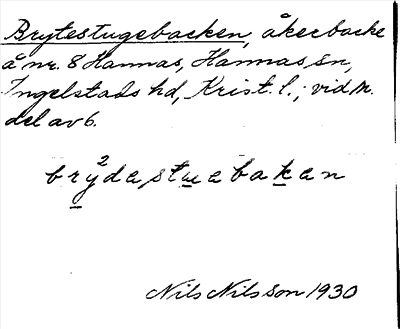 Brytestugebacken, åkerbacke
å nr. 8 Hannas, Hannas sn,
Ingelstads hd, Krist. l.; vid m.
del av 6.
bry²dastuebakan
Nils Nilsson 1930